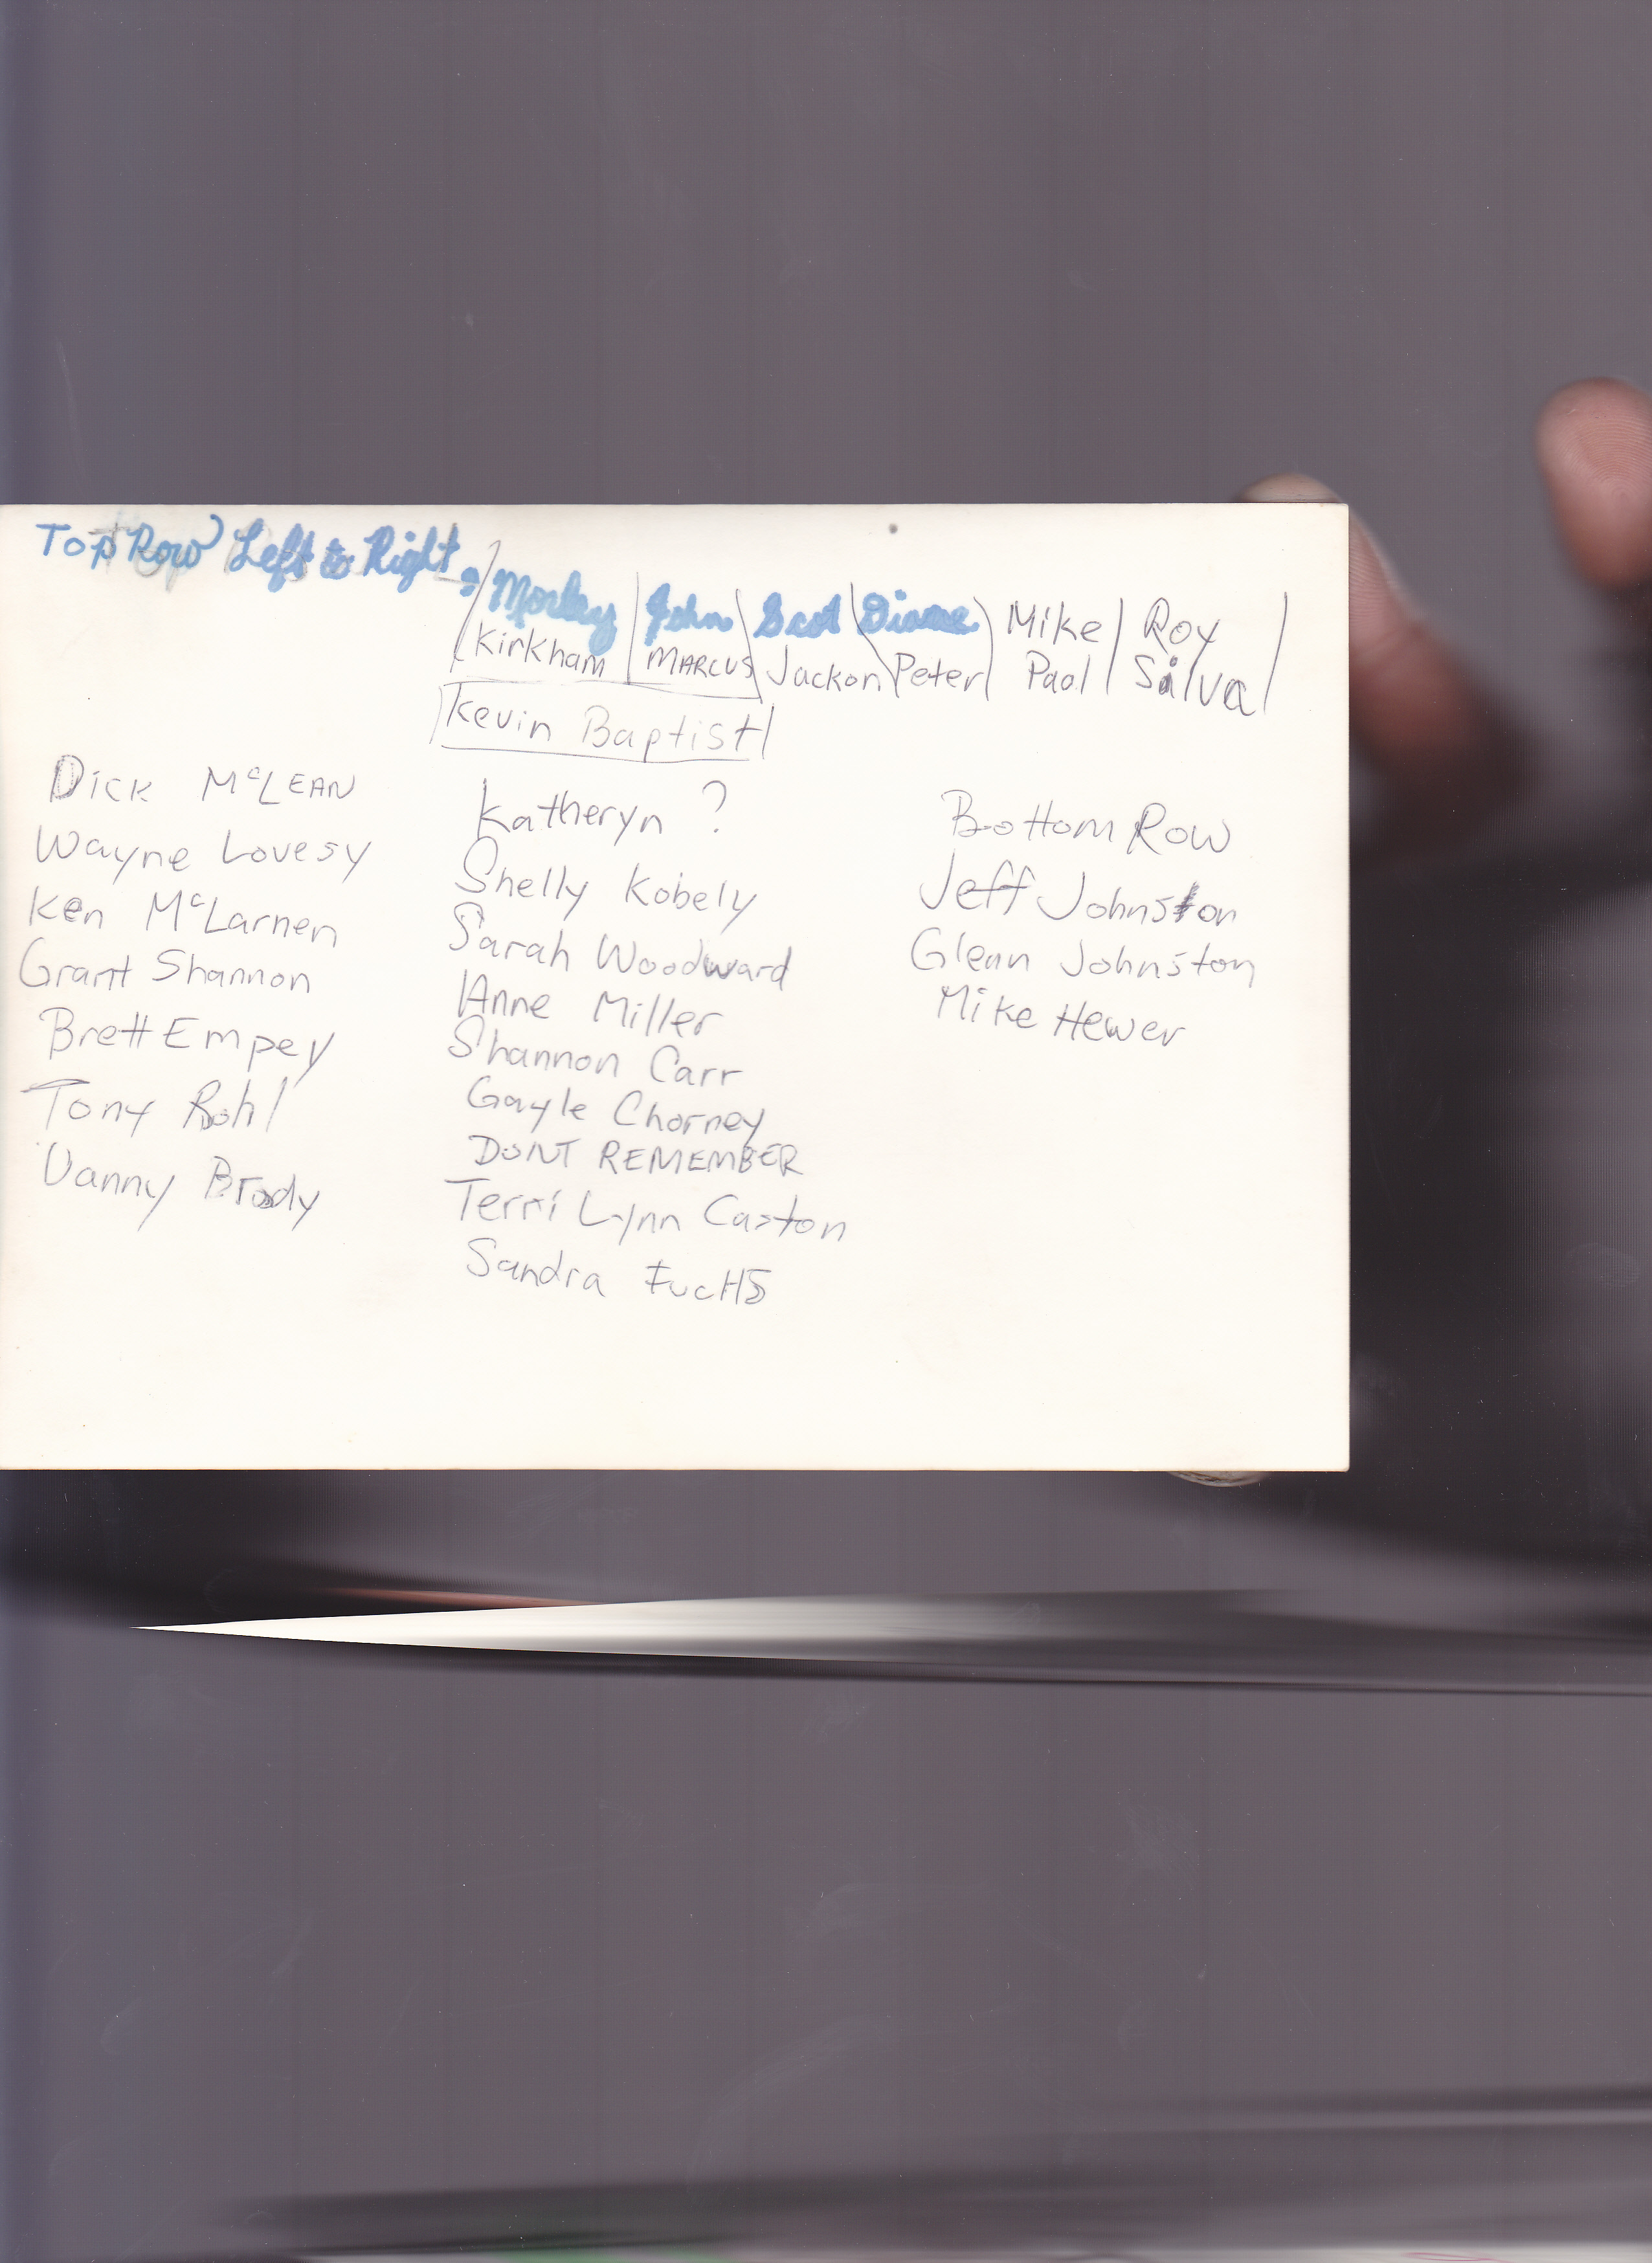 Top Row Left to Right,
Morley John Scot Diane Mike Roy
Kirkham MARCUS Jackon Peter Paol Silva
Kevin Baptist
DICK McLEAN
Wayne Lovesy
Ken McLarnen
Grant Shannon
Brett Empey
Tony Rohl
Danny Brody
Katheryn ?
Shelly Kobely
Sarah Woodward
Anne Miller
Shannon Carr
Gayle Chorney
DONT REMEMBER
Terri Lynn Caston
Sandra FucHS
Bottom Row
Jeff Johnston
Glenn Johnston
Mike Hewer